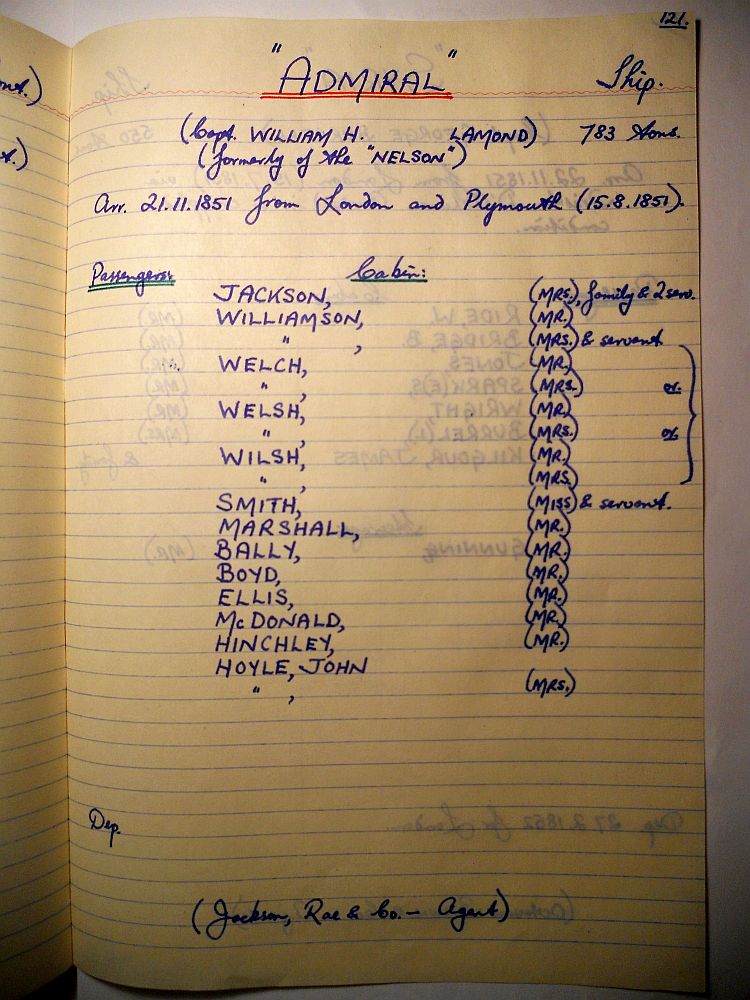 121.
"ADMIRAL" Ship.
(Capt. WILLIAM H. LAMOND) 783 tons.
(formerly of the "NELSON")
Arr. 21.11.1851 from London and Plymouth (15.8.1851).
Passengers: Cabin:
JACKSON, (MRS.), family & 2 serv.
WILLIAMSON, (MR.)
" , (MRS.) & servant
WELCH, (MR.)
" , (MRS.) or.
WELSH, (MR.)
" , (MRS.) or
WILSH, (MR.)
" , (MRS.)
SMITH, (MISS) & servant.
MARSHALL, (MR.)
BALLY, (MR.)
BOYD, (MR.)
ELLIS, (MR.)
McDONALD, (MR.)
HINCHLEY, (MR.)
HOYLE, JOHN
" , (MRS.)
Dep.
(Jackson, Rae & Co. – Agent)